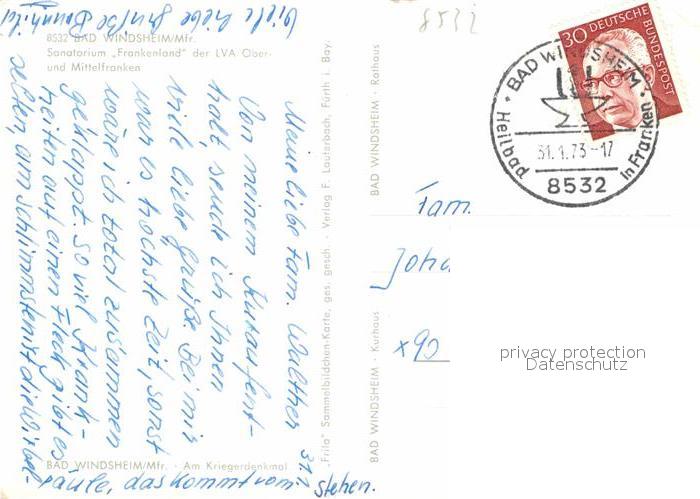 8532 BAD WINDSHEIM/Mfr.
Sanatorium „Frankenland" der LVA Ober-
und Mittelfranken
BAD WINDSHEIM/Mfr. · Am Kriegerdenkmal
„Frila" Sammelbildchen-Karte, ges. gesch. · Verlag F. Lauterbach, Fürth i. Bay.
BAD WINDSHEIM · Rathaus
BAD WINDSHEIM · Kurhaus
8532
30 DEUTSCHE BUNDESPOST
BAD WINDSHEIM
31.1.73-17
8532
Heilbad in Franken
Fam.
Joha
x90
privacy protection
Datenschutz
311
Meine liebe Fam. Walther
Von meinem Kuraufent-
halt sende ich Ihnen
viele liebe Grüße. Bei mir
war es höchste Zeit, sonst
wäre ich total zusammen
geklappt. So viel Krank-
heiten auf einen Fleck gibt es
selten, am schlimmsten ist die Wirbel-
säule, das kommt vom stehen.
Viele liebe Grüße